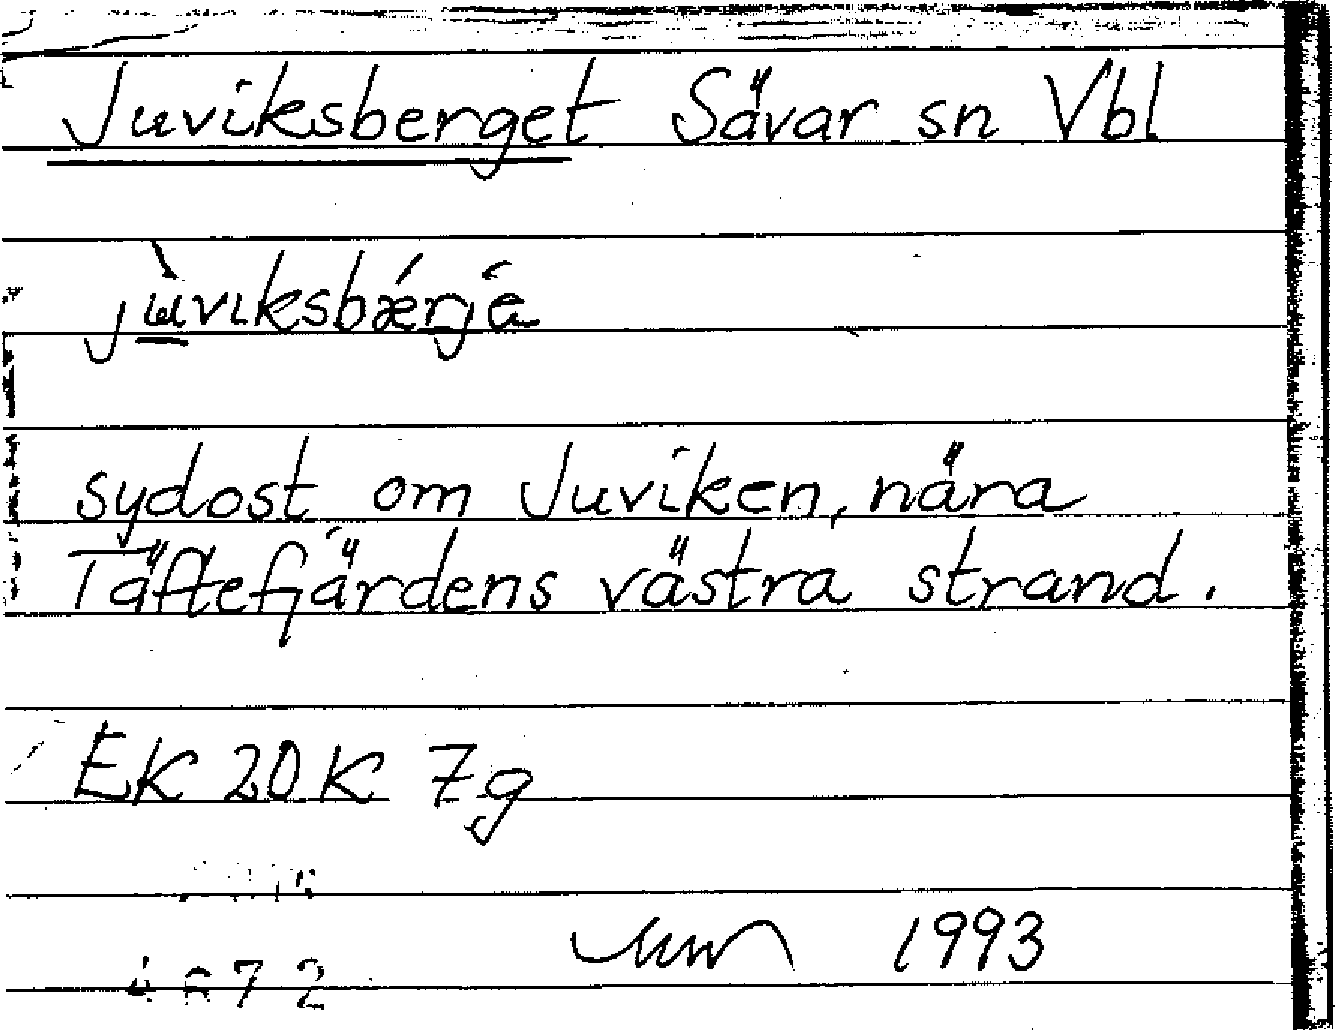 Juviksberget Sävar sn Vbl
sydost om Juviken, nära
Täftefjärdens västra strand.
EK 20K 7g
1993